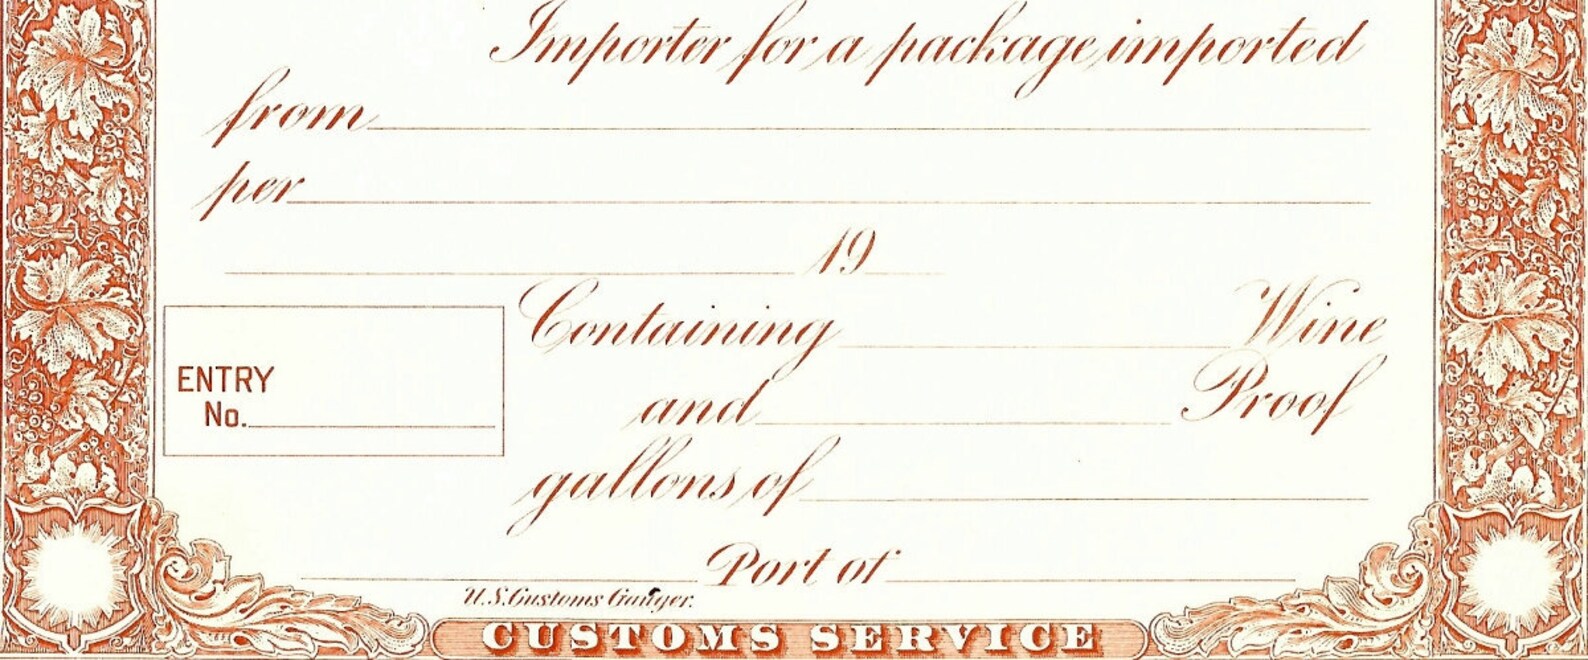 Importer for a package imported
from
per
19
Containing Wine
ENTRY
No.
and Proof
gallons of
Port of
U.S. Customs Gauger.
CUSTOMS SERVICE